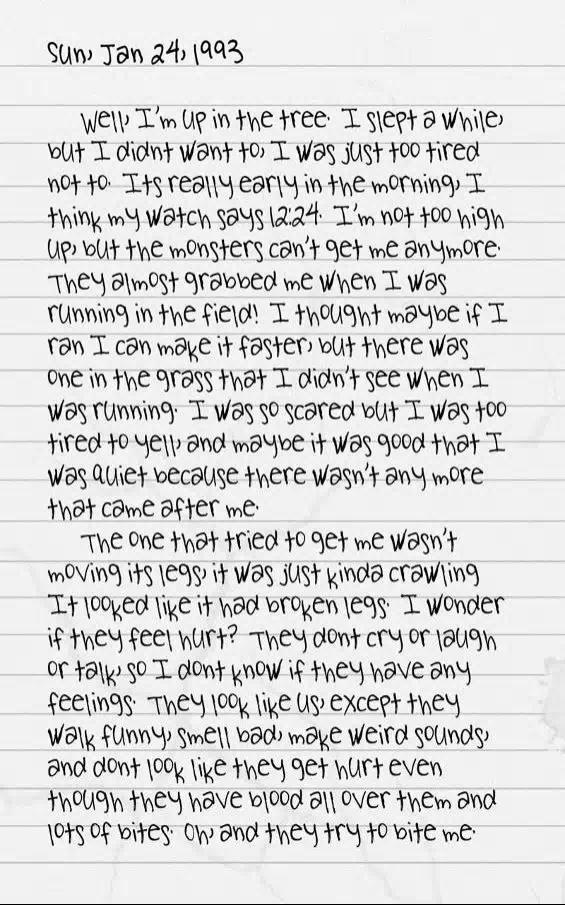 Sun, Jan 24, 1993
Well, I'm up in the tree. I slept a while,
but I didnt want to, I was just too tired
not to. Its really early in the morning, I
think my watch says 12:24. I'm not too high
up, but the monsters can't get me anymore.
They almost grabbed me when I was
running in the field! I thought maybe if I
ran I can make it faster, but there was
one in the grass that I didn't see when I
was running. I was so scared but I was too
tired to yell, and maybe it was good that I
was quiet because there wasn't any more
that came after me.
The one that tried to get me wasn't
moving its legs, it was just kinda crawling
It looked like it had broken legs. I wonder
if they feel hurt? They dont cry or laugh
or talk, so I dont know if they have any
feelings. They look like us, except they
walk funny, smell bad, make weird sounds,
and dont look like they get hurt even
though they have blood all over them and
lots of bites. Oh, and they try to bite me.